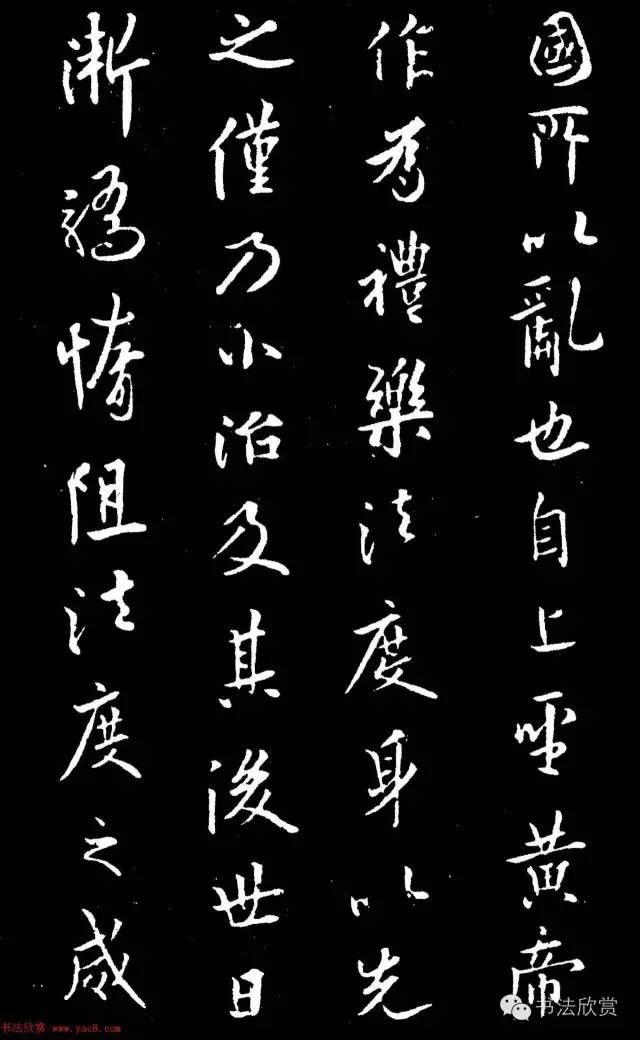 國所以亂也自上聖黃帝
作為禮樂法度身以先
之僅乃小治及其後世日
漸驕惰阻法度之威
书法欣赏
书法欣赏 www.yac8.com